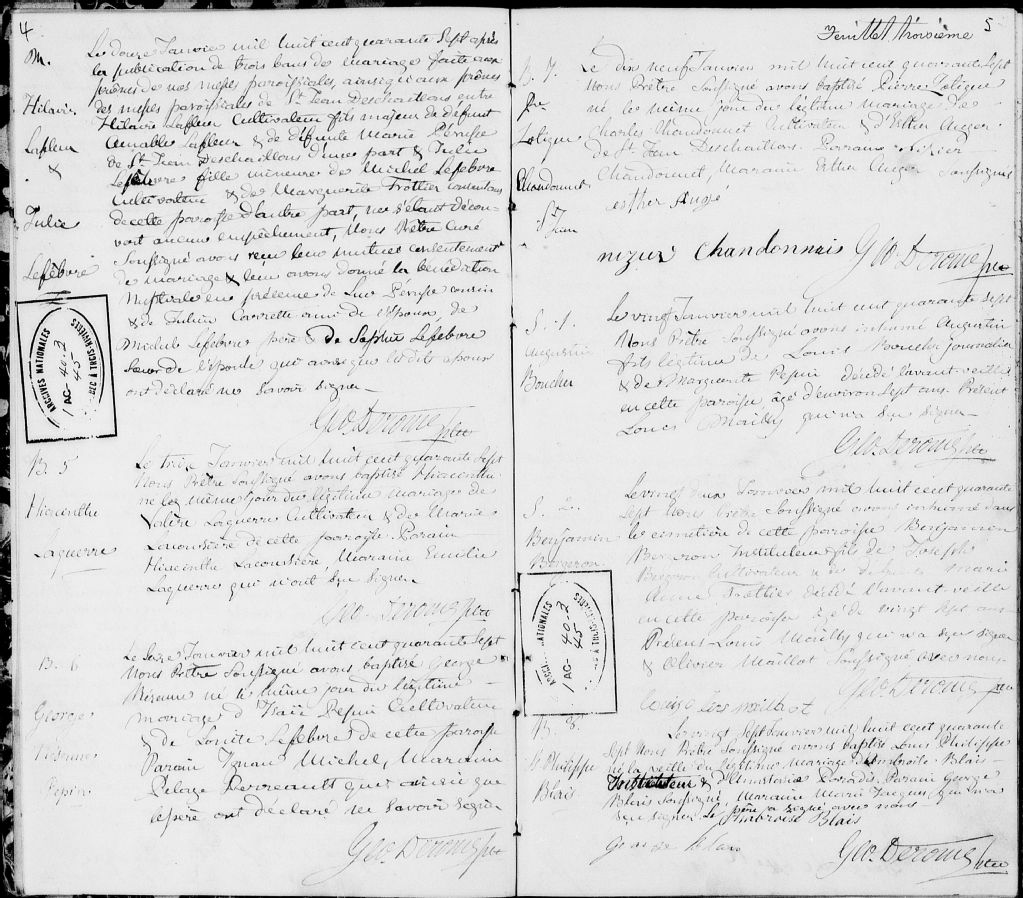 4
M.
Hilaire
Lafleur
&
Julie
Lefebvre
Le douze Janvier mil huit cent quarante Sept après
la publication de trois bans de mariage faite aux
prônes de nos messes paroissiales, ainsi qu'aux prônes
des messes paroissiales de St. Jean Deschaillons entre
Hilaire Lafleur Cultivateur fils majeur de défunt
Aimable Lafleur & de défunte Marie Pérusse
de St. Jean Deschaillons d'une part & Julie
Lefebvre fille mineure de Michel Lefebvre
Cultivateur & de Marguerite Trottier consentans
de cette paroisse d'autre part, ne s'étant décou-
vert aucun empêchement, Nous Prêtre Curé
Soussigné avons reçu leur mutuel consentement
de mariage & leur avons donné la bénédiction
Nuptiale en présence de Luc Pérusse cousin
& de Julien ami de l'Epoux, de
Michel Lefebvre père & de Sophie Lefebvre
Soeur de l'Epouse qui ainsi que les dits époux
ont déclaré ne savoir signer
Geo. Derome Ptre
ARCHIVES NATIONALES
1 AC- 40-2
45-2
DEC À TROIS-RIVIÈRES
B. 5
Hiacinthe
Laguerre
Le treize Janvier mil huit cent quarante Sept
Nous Prêtre Soussigné avons baptisé Hiacinthe
né le même jour du légitime mariage de
Valère Laguerre Cultivateur & de Marie
Lacoursière de cette paroisse Parain
Hiacinthe Lacoursière, Maraine Emilie
Laguerre qui n'ont su signer
Geo. Derome Ptre
B. 6
George
Pepin
Le Seize Janvier mil huit cent quarante Sept
Nous Prêtre Soussigné avons baptisé George
né le même jour du légitime
mariage d'Isaïe Pepin Cultivateur
& de Louise Lefebvre de cette paroisse
Parain Michel, Maraine
Pelage qui ainsi que
le père ont déclaré ne savoir signer
Geo. Derome Ptre
Feuillet troisième 5
B. 7.
Zotique
Chandonnet
St Jean
Le dix neuf Janvier mil huit cent quarante Sept
Nous Prêtre Soussigné avons baptisé Pierre Zotique
né le même jour du légitime mariage de
Charles Chandonnet Cultivateur & d'Esther Auger
de St. Jean Deschaillons. Parrain
Chandonnet, Maraine Esther Auger Soussignés
esther Augé
chandonnais Geo. Derome Ptre
S. 1.
Augustin
Boucher
Le vingt Janvier mil huit cent quarante Sept
Nous Prêtre Soussigné avons inhumé Augustin
fils légitime de Louis Boucher Journalier
& de Marguerite Pepin décédé l'avant veille
en cette paroisse, âgé d'environ Sept ans. Présent
Louis Mailly qui n'a su signer
Geo. Derome Ptre
S. 2.
Benjamin
Bergeron
Janvier mil huit cent quarante
Sept Nous Prêtre Soussigné avons inhumé dans
le cimetière de cette paroisse Benjamin
Bergeron Instituteur fils de Joseph
Bergeron Cultivateur & de Marie
Anne Trottier décédé l'avant-veille
en cette paroisse âgé de vingt Sept ans
Présent Louis Mailly qui n'a su signer
& Olivier Maillot Soussigné avec nous
Geo. Derome Ptre
maillot
NATIONALES
1 AC- 40-2
45
B. 8.
Ls Philippe
Blais
Le vingt Sept Janvier mil huit cent quarante
Sept Nous Prêtre Soussigné avons baptisé Louis Philippe
né la veille du légitime mariage d'Ambroise Blais
Instituteur & d'Anastasie Paradis. Parain George
Blais Soussigné, Maraine Marie Jacques qui n'a
su signer. Le père a signé avec nous
Ambroise Blais
George blais Geo. Derome Ptre